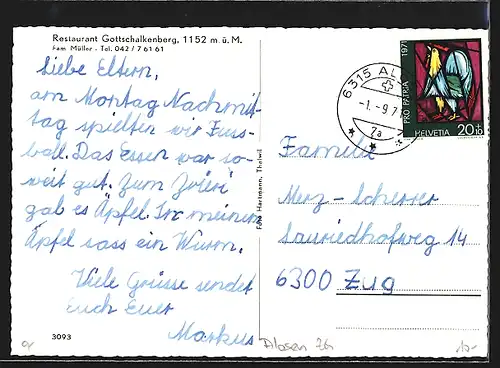 Restaurant Gottschalkenberg, 1152 m.ü.M.
Fam. Müller - Tel. 042 / 7 61 61
Liebe Eltern,
am Montag Nachmit-
tag spielten wir Fuss-
ball. Das Essen war so-
weit gut. Zum Zvieri
gab es Äpfel. In meinem
Äpfel sass ein Wurm.
Viele Grüsse sendet
Euch Euer
Markus
3093
Foto Hartmann, Thalwil
6315
-1.-9.7
7a
PRO PATRIA 1971
HELVETIA 20+10
Familie
Merz-Scherrer
Lauriedhofweg 14
6300 Zug